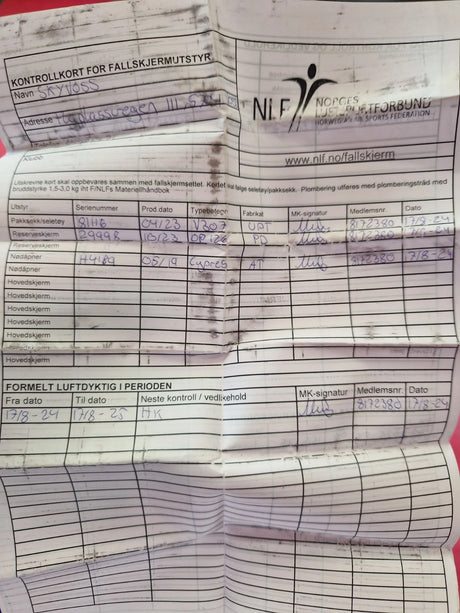 KONTROLLKORT FOR FALLSKJERMUTSTYR
Navn SKYVOSS
Adresse
NLF NORGES LUFTSPORTFORBUND
NORWEGIAN AIR SPORTS FEDERATION
www.nlf.no/fallskjerm
Utskrevne kort skal oppbevares sammen med fallskjermsettet. Kortet skal følge seletøy/pakksekk. Plombering utføres med plomberingstråd med
bruddstyrke 1,5-3,0 kg iht F/NLFs Materiellhåndbok
Utstyr Serienummer Prod.dato Typebetegn Fabrikat MK-signatur Medlemsnr. Dato
Pakksekk/seletøy 81116 04/23 V307 UPT 8172380 17/8-24
Reserveskjerm 29998 10/23 OP 126 PD
Reserveskjerm
Nødåpner H4189 05/19 Cypres AT 8172380 17/8-24
Nødåpner
Hovedskjerm
Hovedskjerm
Hovedskjerm
Hovedskjerm
Hovedskjerm
Hovedskjerm
Hovedskjerm
FORMELT LUFTDYKTIG I PERIODEN
Fra dato Til dato Neste kontroll / vedlikehold MK-signatur Medlemsnr. Dato
17/8-24 17/8-25 HK 8172380 17/8-24